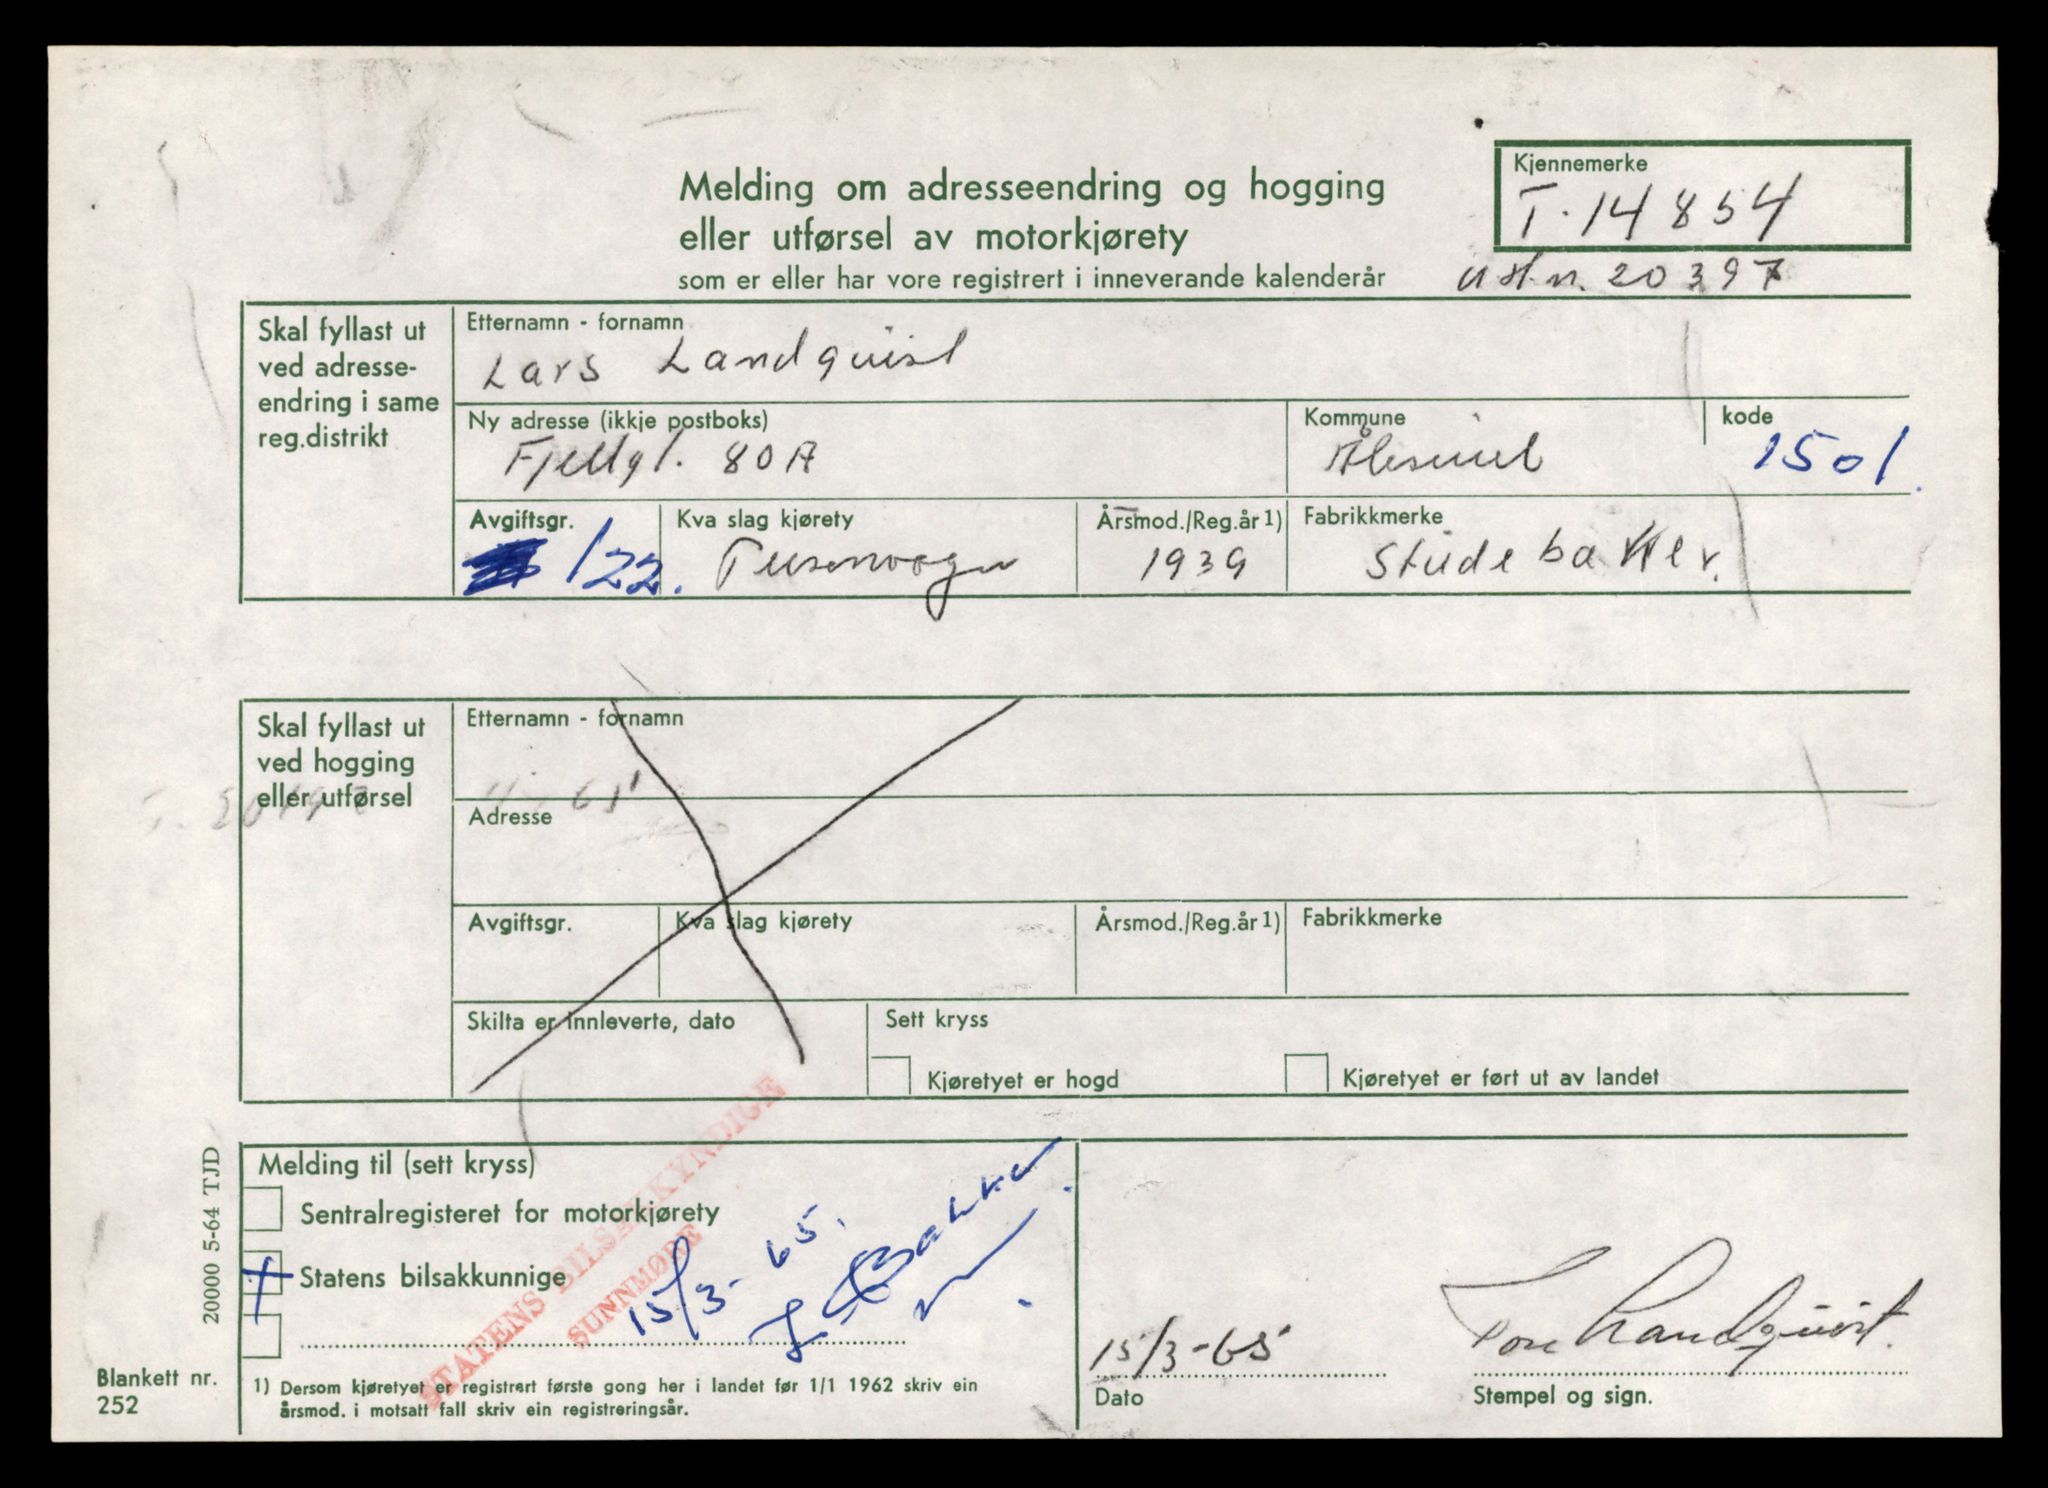 Melding om adresseendring og hogging
eller utførsel av motorkjørety
som er eller har vore registrert i inneverande kalenderår
Kjennemerke
T-14854
20397
Skal fyllast ut
ved adresse-
endring i same
reg.distrikt
Etternamn - fornamn
Lars Landquist
Ny adresse (ikkje postboks)
Fjellgt. 80A
Kommune
Ålesund
kode
1501
Avgiftsgr.
122.
Kva slag kjørety
Årsmod./Reg.år 1)
1939
Fabrikkmerke
Studebakker.
Skal fyllast ut
ved hogging
eller utførsel
Etternamn - fornamn
Adresse
Avgiftsgr.
Kva slag kjørety
Årsmod./Reg.år 1)
Fabrikkmerke
Skilta er innleverte, dato
Sett kryss
Kjøretyet er hogd
Kjøretyet er ført ut av landet
Melding til (sett kryss)
Sentralregisteret for motorkjørety
Statens bilsakkunnige
STATENS BILSAKKYNDIGE
SUNNMØRE
15/3-65.
15/3-65
Dato
Landquist
Stempel og sign.
1) Dersom kjøretyet er registrert første gong her i landet før 1/1 1962 skriv ein
årsmod. i motsatt fall skriv ein registreringsår.
20000 5-64 TJD
Blankett nr.
252